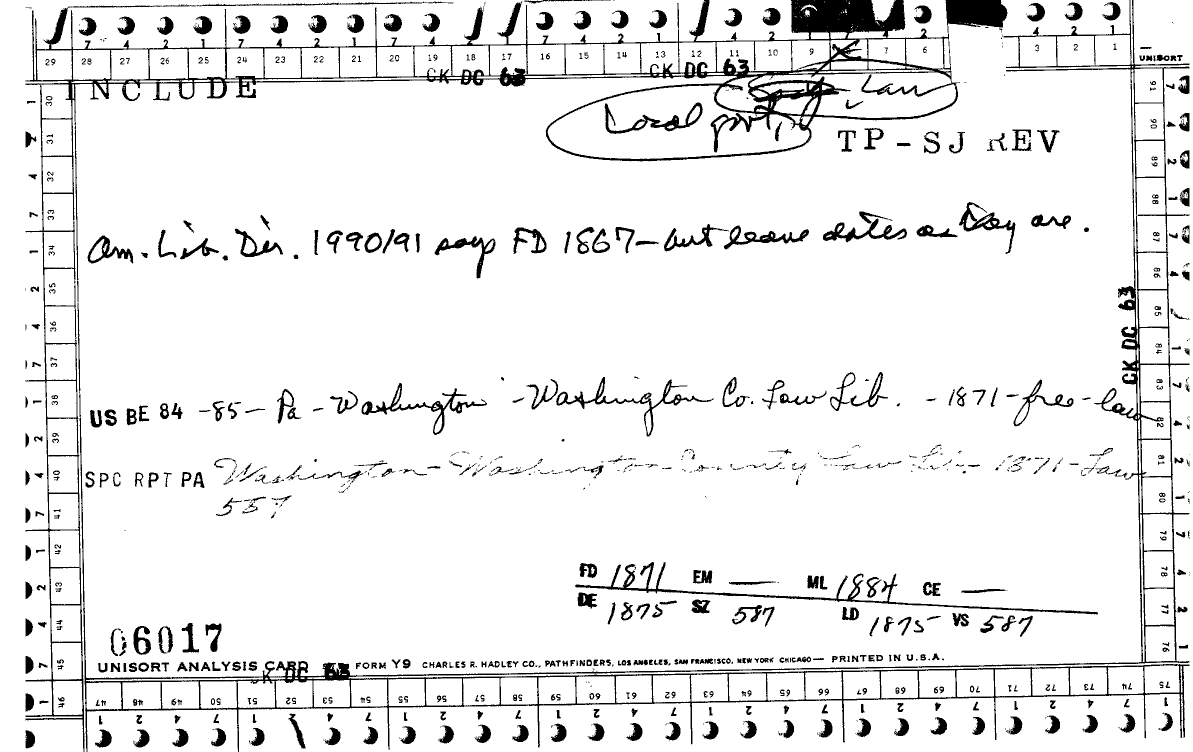 29 28 27 26 25 24 23 22 21 20 19 18 17 16 15 14 13 12 11 10 9 7 6 3 2 1
UNISORT
CK DC 63 CK DC 63
INCLUDE
Law
Local govt,
TP-SJ REV
Am. Lib. Dir. 1990/91 says FD 1867 - but leave dates as they are.
CK DC 63
US BE 84 -85- Pa - Washington - Washington Co. Law Lib. - 1871-free-law
SPC RPT PA Washington - Washington County Law Lib. - 1871 - Law
557
FD 1871 EM — ML 1884 CE —
DE 1875 SZ 587 LD 1875 VS 587
06017
UNISORT ANALYSIS CARD FORM Y9 CHARLES R. HADLEY CO., PATHFINDERS, LOS ANGELES, SAN FRANCISCO, NEW YORK CHICAGO— PRINTED IN U.S.A.
CK DC 63
47 48 49 50 51 52 53 54 55 56 57 58 59 60 61 62 63 64 65 66 67 68 69 70 71 72 73 74 75